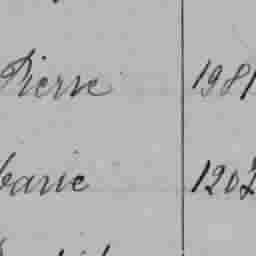 Pierre 1981
varie 1202